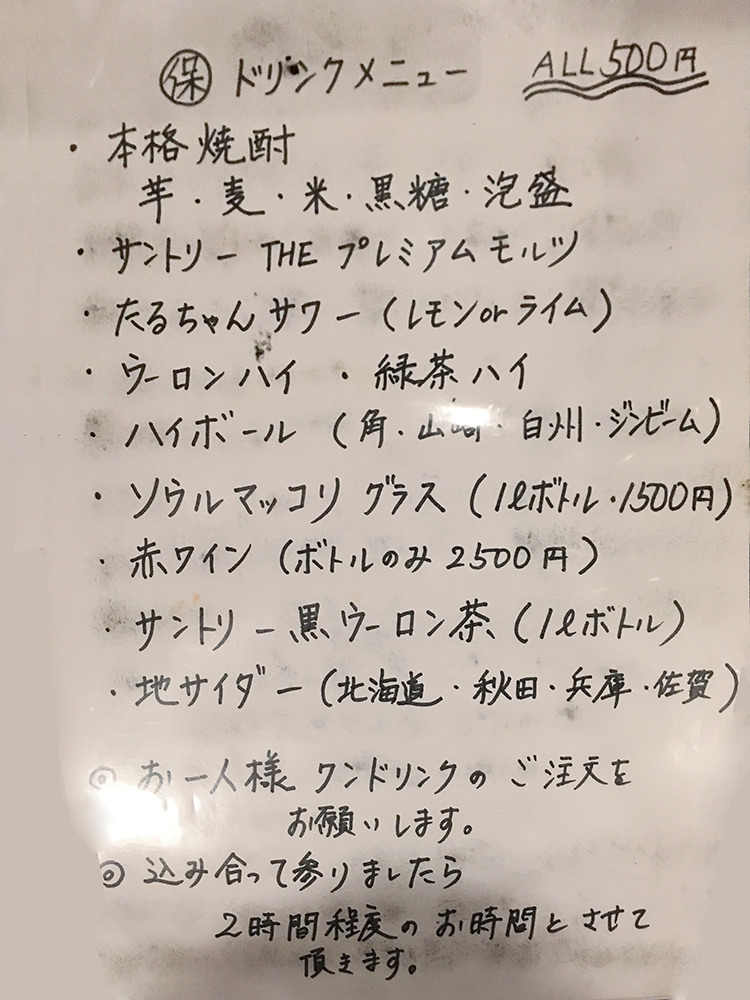 ㊕ドリンクメニュー ALL500円
・本格焼酎
芋・麦・米・黒糖・泡盛
・サントリー THE プレミアムモルツ
・たるちゃんサワー (レモンorライム)
・ウーロンハイ ・ 緑茶ハイ
・ハイボール (角・山崎・白州・ジンビーム)
・ソウルマッコリ グラス (1ℓボトル・1500円)
・赤ワイン (ボトルのみ 2500円)
・サントリー黒ウーロン茶 (1ℓボトル)
・地サイダー (北海道・秋田・兵庫・佐賀)
◎お一人様 ワンドリンクの ご注文を
お願いします。
◎込み合って参りましたら
2時間程度の お時間とさせて
頂きます。